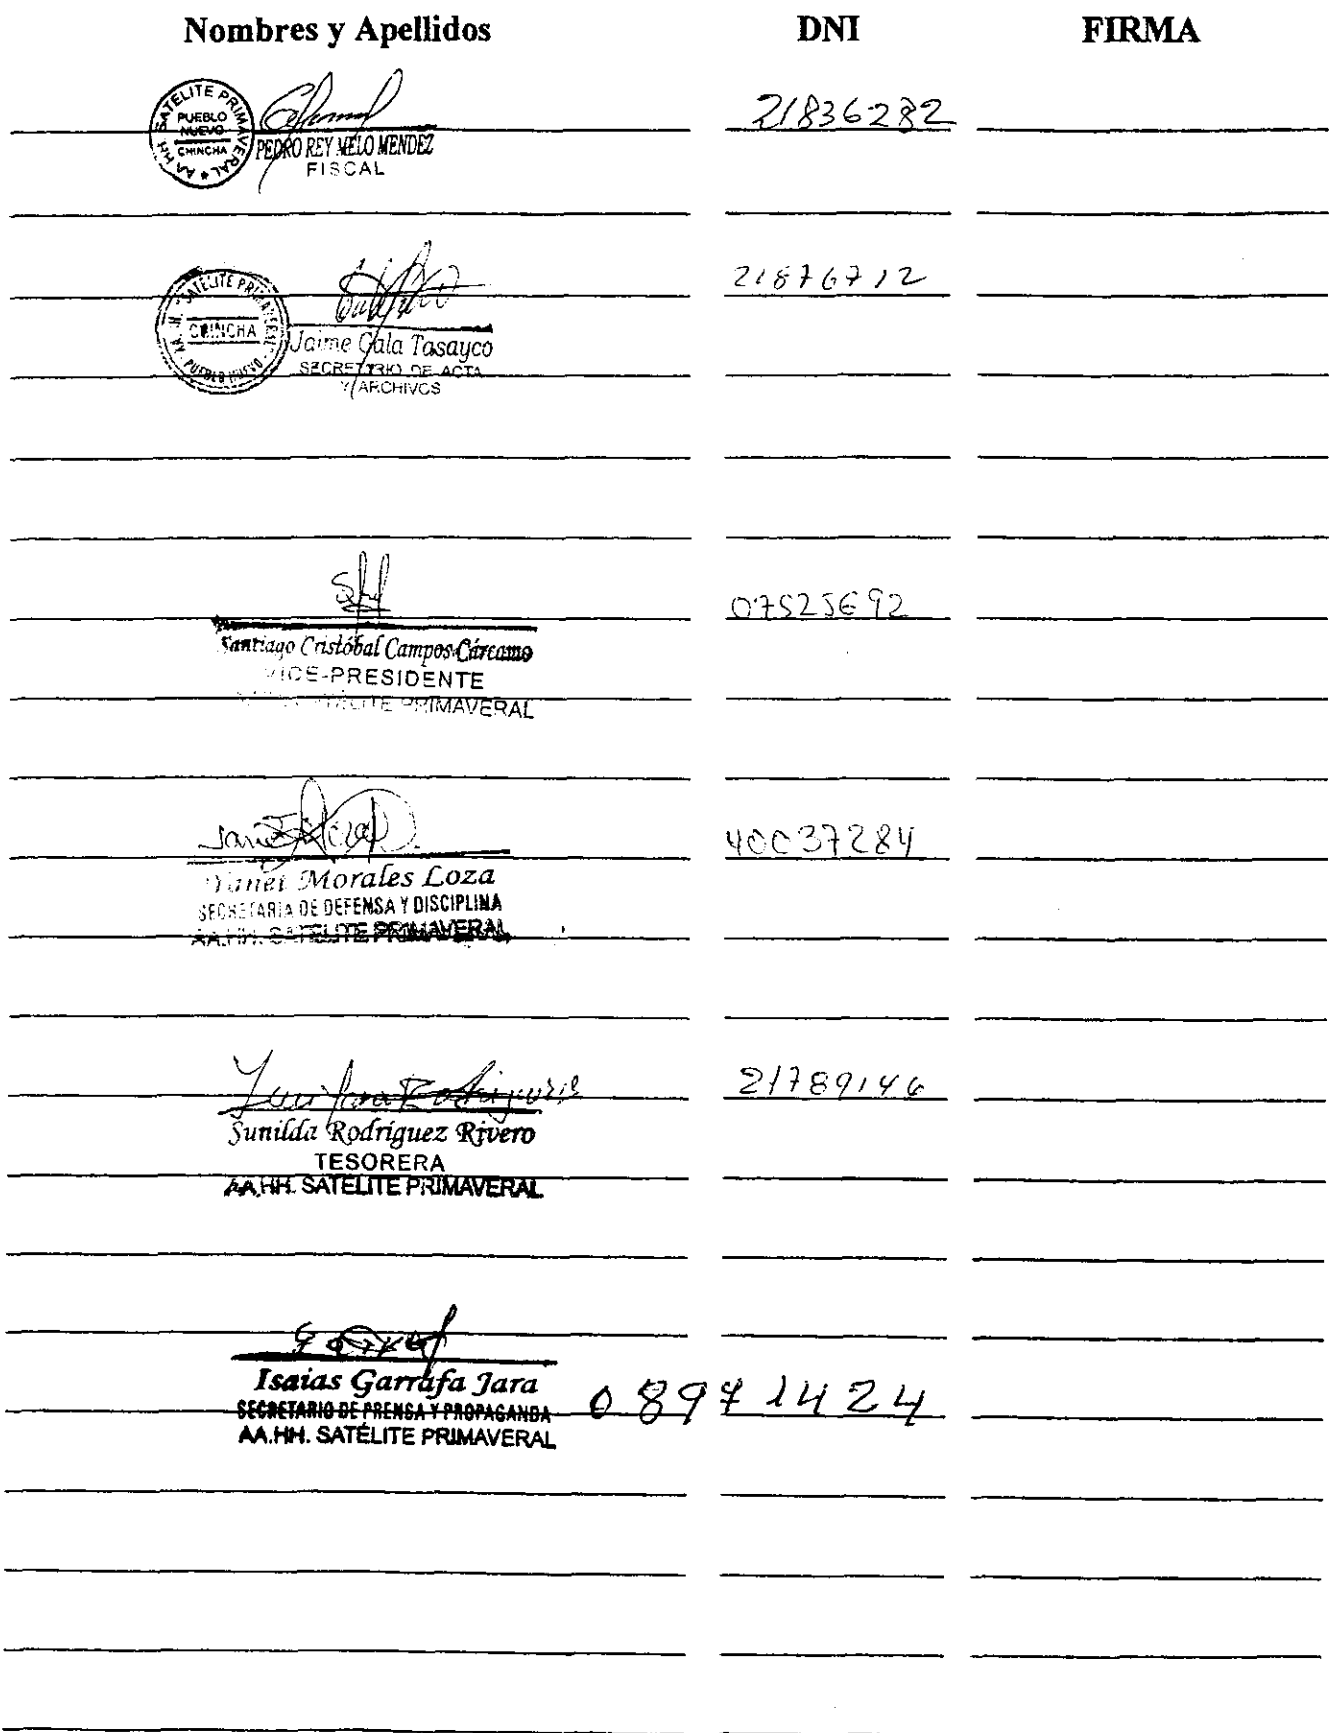 Nombres y Apellidos DNI FIRMA
AA HH. SATELITE PRIMAVERAL *
PUEBLO
NUEVO
CHINCHA
21836282
PEDRO REY MELO MENDEZ
FISCAL
A. H. SATELITE PRIMAVERAL - PUEBLO NUEVO
CHINCHA
21876712
Jaime Gala Tasayco
SECRETRIO DE ACTA
Y ARCHIVOS
07525692
Santiago Cristóbal Campos Cárcamo
VICE-PRESIDENTE
SATELITE PRIMAVERAL
40037284
Yanet Morales Loza
SECRETARIA DE DEFENSA Y DISCIPLINA
AA.HH. SATELITE PRIMAVERAL
21789146
Sunilda Rodríguez Rivero
TESORERA
AA.HH. SATELITE PRIMAVERAL
Isaias Garrafa Jara
08971424
SECRETARIO DE PRENSA Y PROPAGANDA
AA.HH. SATÉLITE PRIMAVERAL